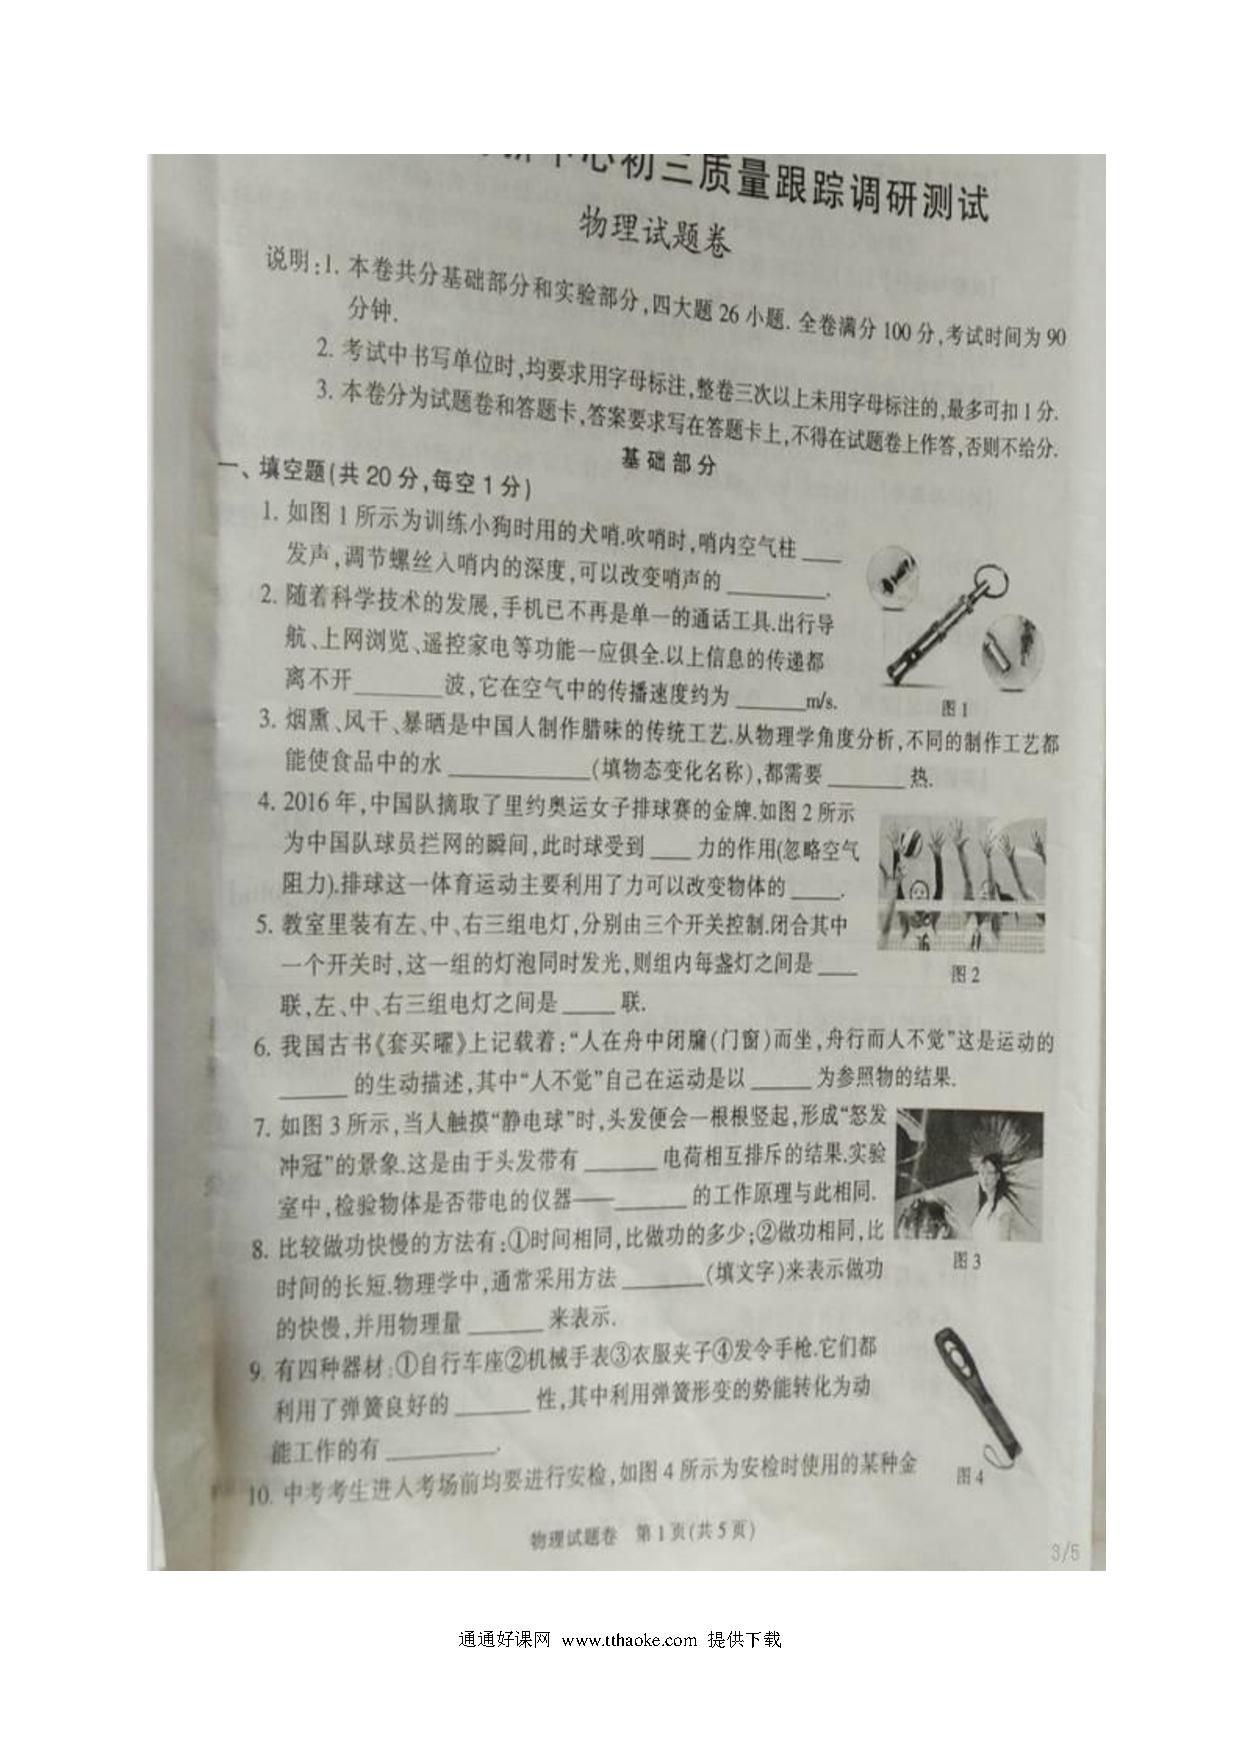 中心初三质量跟踪调研测试
物理试题卷
说明:1. 本卷共分基础部分和实验部分,四大题26小题. 全卷满分100分,考试时间为90
分钟.
2. 考试中书写单位时,均要求用字母标注,整卷三次以上未用字母标注的,最多可扣1分.
3. 本卷分为试题卷和答题卡,答案要求写在答题卡上,不得在试题卷上作答,否则不给分.
基础部分
一、填空题(共20分,每空1分)
1. 如图1所示为训练小狗时用的犬哨.吹哨时,哨内空气柱____
发声,调节螺丝入哨内的深度,可以改变哨声的________.
2. 随着科学技术的发展,手机已不再是单一的通话工具.出行导
航、上网浏览、遥控家电等功能一应俱全.以上信息的传递都
离不开________波,它在空气中的传播速度约为______m/s.
图1
3. 烟熏、风干、暴晒是中国人制作腊味的传统工艺.从物理学角度分析,不同的制作工艺都
能使食品中的水____________(填物态变化名称),都需要______热.
4. 2016年,中国队摘取了里约奥运女子排球赛的金牌.如图2所示
为中国队球员拦网的瞬间,此时球受到____力的作用(忽略空气
阻力).排球这一体育运动主要利用了力可以改变物体的____.
5. 教室里装有左、中、右三组电灯,分别由三个开关控制.闭合其中
一个开关时,这一组的灯泡同时发光,则组内每盏灯之间是____
联,左、中、右三组电灯之间是____联.
图2
6. 我国古书《套买曜》上记载着:“人在舟中闭牖(门窗)而坐,舟行而人不觉”这是运动的
______的生动描述,其中“人不觉”自己在运动是以_____为参照物的结果.
7. 如图3所示,当人触摸“静电球”时,头发便会一根根竖起,形成“怒发
冲冠”的景象.这是由于头发带有______电荷相互排斥的结果.实验
室中,检验物体是否带电的仪器——______的工作原理与此相同.
8. 比较做功快慢的方法有:①时间相同,比做功的多少;②做功相同,比
图3
时间的长短.物理学中,通常采用方法_______(填文字)来表示做功
的快慢,并用物理量______来表示.
9. 有四种器材:①自行车座②机械手表③衣服夹子④发令手枪.它们都
利用了弹簧良好的______性,其中利用弹簧形变的势能转化为动
能工作的有________.
10. 中考考生进入考场前均要进行安检,如图4所示为安检时使用的某种金
图4
物理试题卷 第1页(共5页)
3/5
通通好课网 www.tthaoke.com 提供下载